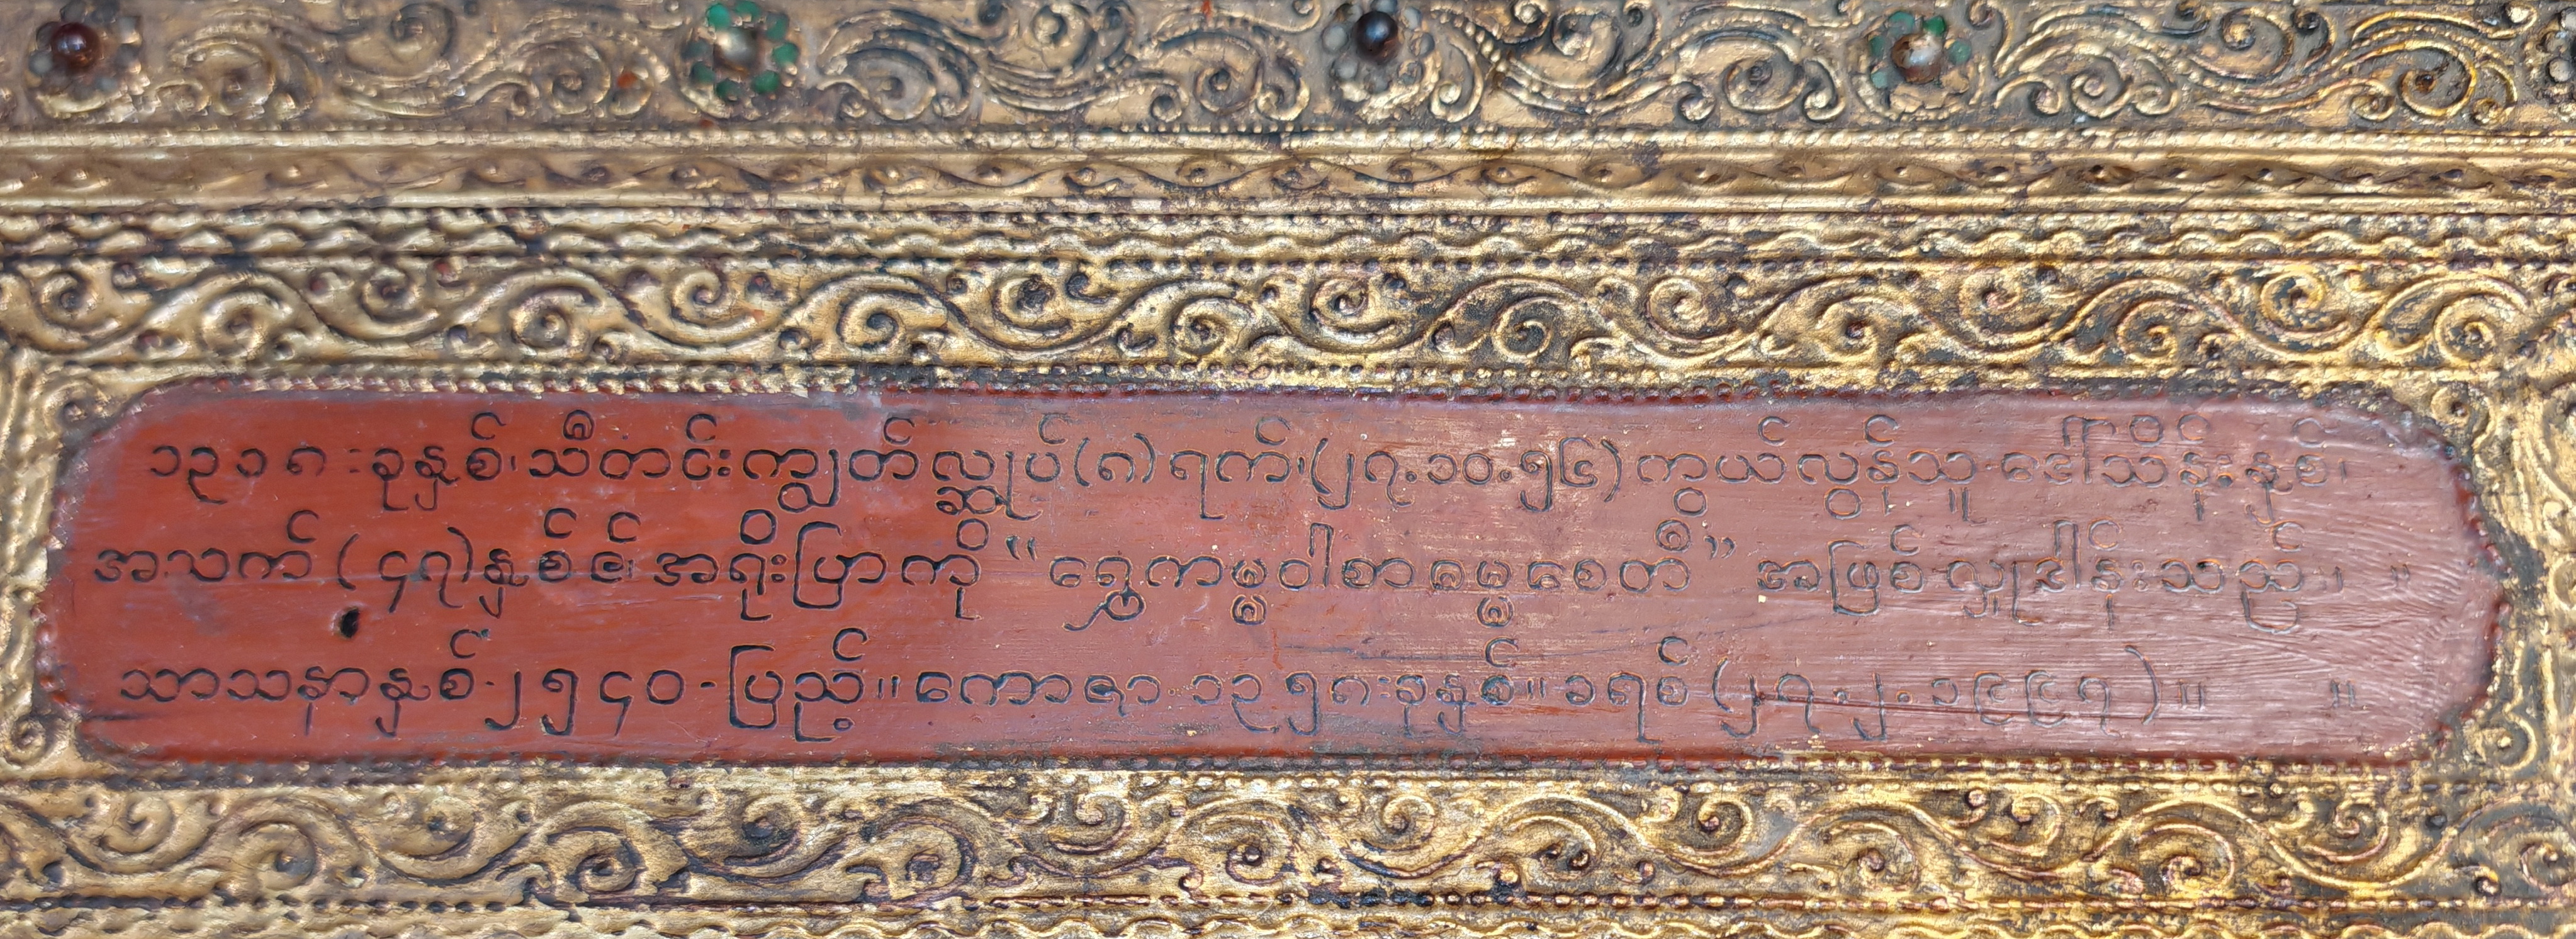 ၁၃၁၈ - ခုနှစ်၊ သီတင်းကျွတ်လ္ဆုပ် (၈) ရက်၊ (၂၇.၁၀.၅၆) ကွယ်လွန်သူ - ဒေါ်သန်းနှစ်၊
အသက် (၄၇) နှစ်၏ အရိုးပြာကို “ရွှေကမ္မဝါစာဓမ္မစေတီ” အဖြစ် လှူဒါန်းသည်။ ။
သာသနာနှစ် - ၂၅၄၀ - ပြည့်။ ကောဇာ ၁၃၅၈ - ခုနှစ်။ ခရစ် (၂၇.၂.၁၉၉၇)။ ။